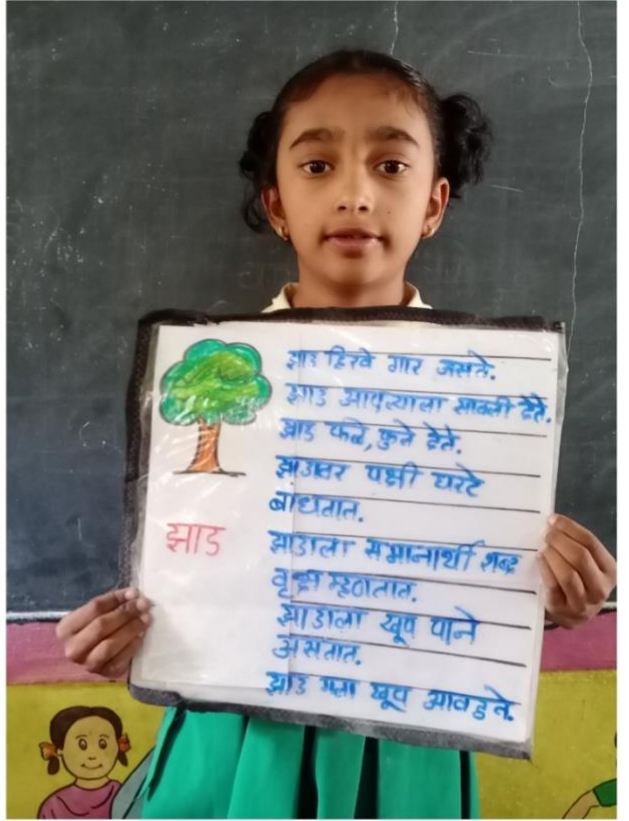 झाड
झाड हिरवे गार असते.
झाड आपल्याला सावली देते.
झाड फळे, फुले देते.
झाडावर पक्षी घरटे
बांधतात.
झाडाला समानार्थी शब्द
वृक्ष म्हणतात.
झाडाला खूप पाने
असतात.
झाड मला खूप आवडते.